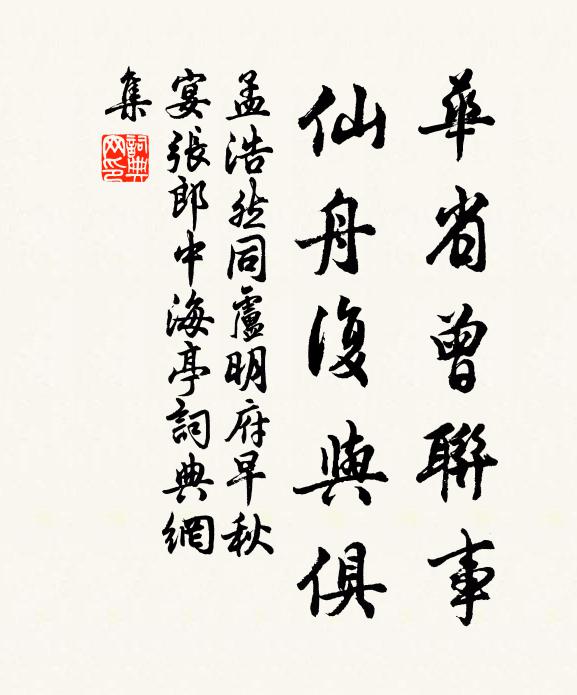 華省曾聯事
仙舟復與俱
孟浩然同盧明府早秋
宴張郎中海亭詞典網
集
詞典網印